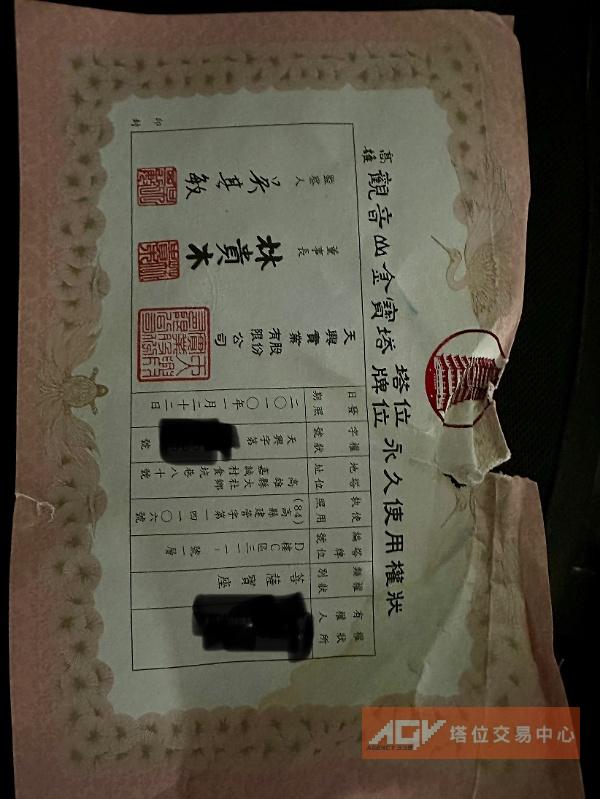 高雄觀音山金寶塔 塔位牌位 永久使用權狀
權狀所有人
權狀類別
菩薩寶座
塔牌位編號
D樓C區三一-
號一層
使用執照
(84)高縣建管字第
一一四〇六號
塔位地址
高雄縣大社鄉
嘉誠村食坑巷八十號
權狀字號
天興字第
號
發照日期
二〇一〇年一
月二十二日
天興實業
股份有限公司
董事長
林貴木
監察人
吳其敏
印
封
AGV 塔位交易中心